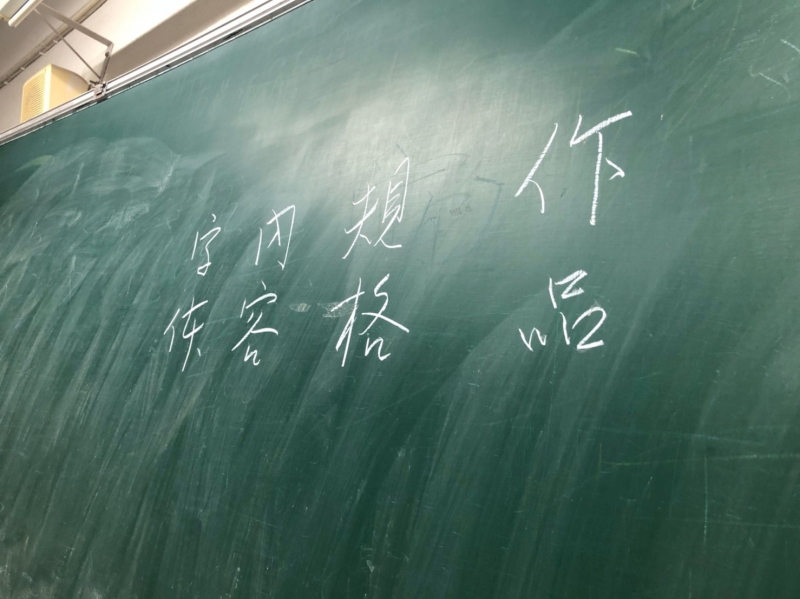 作品
規格
内容
字体